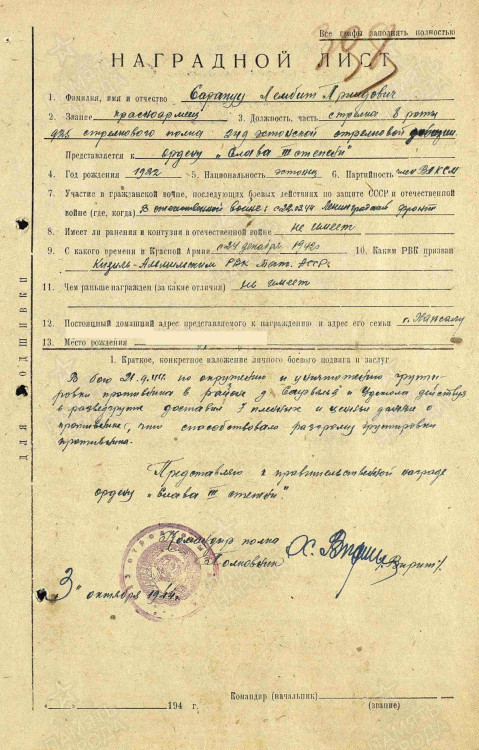 Все графы заполнять полностью
НАГРАДНОЙ ЛИСТ
1. Фамилия, имя и отчество Сарапуу Лембит
2. Звание красноармеец 3. Должность, часть стрелка 8 роты
925 стрелкового полка эстонской стрелковой дивизии
Представляется к ордену „Слава III степени"
4. Год рождения 1922 5. Национальность эстонец 6. Партийность член ВЛКСМ
7. Участие в гражданской войне, последующих боевых действиях по защите СССР и отечественной
войне (где, когда) В отечественной войне: с Ленинградский фронт
8. Имеет ли ранения и контузии в отечественной войне не имеет
9. С какого времени в Красной Армии с 24 декабря 1942г 10. Каким РВК призван
РВК Тат. АССР.
11. Чем ранее награжден (за какие отличия) не имеет
12. Постоянный домашний адрес представляемого к награждению и адрес его семьи г. Хапсалу
13. Место рождения
I. Краткое, конкретное изложение личного боевого подвига и заслуг
В бою 21.9.44г. по окружению и уничтожению группи-
ровки противника в районе д. и действуя
в разведгруппе доставил 7 пленных и ценные данные о
противнике, что способствовало разгрому группировки
противника.
Представляю к правительственной награде
ордену „Слава III степени".
Командир полка
Полковник
3" октября 1944г.
ДЛЯ ПОДШИВКИ
Командир (начальник)
„ " 194 г. (звание)